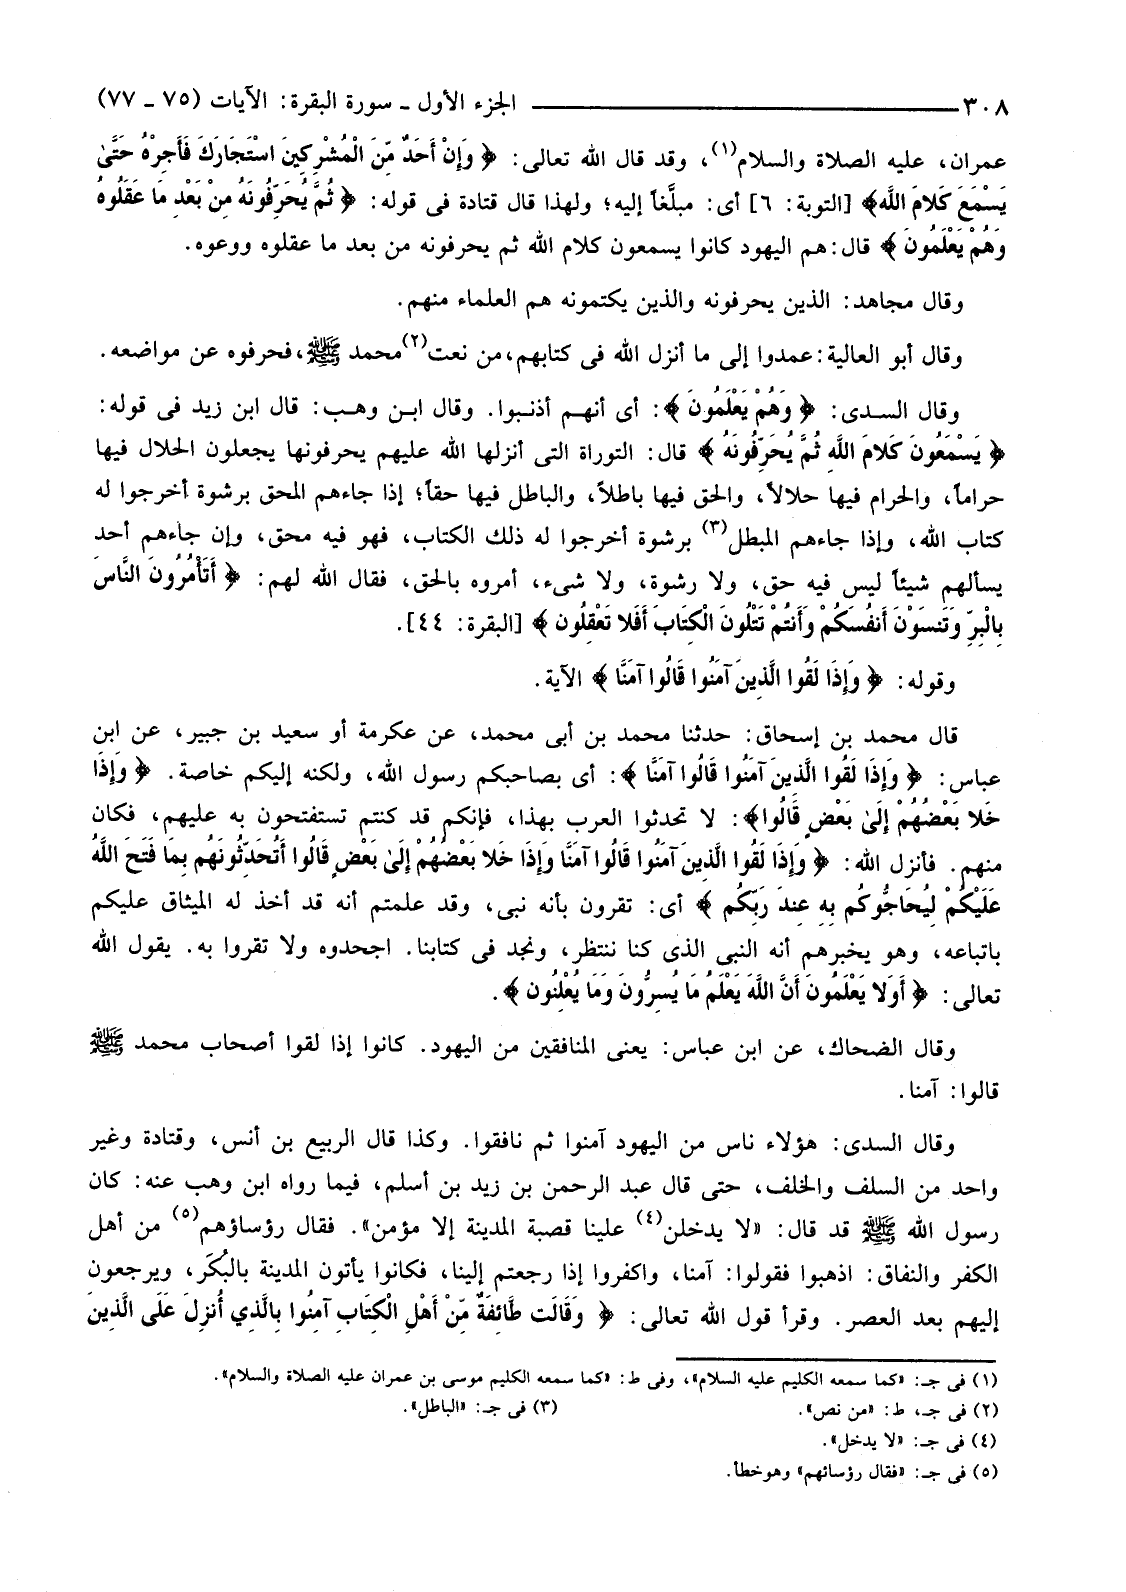 ٣٠٨ ــــــــــــــ الجزء الأول ـ سورة البقرة: الآيات (٧٥ ـ ٧٧)
عمران، عليه الصلاة والسلام(١)، وقد قال الله تعالى: ﴿ وَإِنْ أَحَدٌ مِّنَ الْمُشْرِكِينَ اسْتَجَارَكَ فَأَجِرْهُ حَتَّىٰ
يَسْمَعَ كَلامَ اللَّه﴾ [التوبة: ٦] أى: مبلَّغاً إليه؛ ولهذا قال قتادة فى قوله: ﴿ ثُمَّ يُحَرِّفُونَهُ مِنْ بَعْدِ مَا عَقَلُوهُ
وَهُمْ يَعْلَمُونَ ﴾ قال: هم اليهود كانوا يسمعون كلام الله ثم يحرفونه من بعد ما عقلوه ووعوه.
وقال مجاهد: الذين يحرفونه والذين يكتمونه هم العلماء منهم.
وقال أبو العالية: عمدوا إلى ما أنزل الله فى كتابهم، من نعت(٢) محمد ﷺ، فحرفوه عن مواضعه.
وقال السدى: ﴿ وَهُمْ يَعْلَمُونَ ﴾: أى أنهم أذنبوا. وقال ابن وهب: قال ابن زيد فى قوله:
﴿ يَسْمَعُونَ كَلامَ اللَّه ثُمَّ يُحَرِّفُونَهُ ﴾ قال: التوراة التى أنزلها الله عليهم يحرفونها يجعلون الحلال فيها
حراماً، والحرام فيها حلالاً، والحق فيها باطلاً، والباطل فيها حقاً؛ إذا جاءهم المحق برشوة أخرجوا له
كتاب الله، وإذا جاءهم المبطل(٣) برشوة أخرجوا له ذلك الكتاب، فهو فيه محق، وإن جاءهم أحد
يسألهم شيئاً ليس فيه حق، ولا رشوة، ولا شىء، أمروه بالحق، فقال الله لهم: ﴿ أَتَأْمُرُونَ النَّاسَ
بِالْبِرِّ وَتَنسَوْنَ أَنفُسَكُمْ وَأَنتُمْ تَتْلُونَ الْكِتَابَ أَفَلا تَعْقِلُون ﴾ [البقرة: ٤٤].
وقوله: ﴿ وَإِذَا لَقُوا الَّذِينَ آمَنُوا قَالُوا آمَنَّا ﴾ الآية.
قال محمد بن إسحاق: حدثنا محمد بن أبى محمد، عن عكرمة أو سعيد بن جبير، عن ابن
عباس: ﴿ وَإِذَا لَقُوا الَّذِينَ آمَنُوا قَالُوا آمَنَّا ﴾: أى بصاحبكم رسول الله، ولكنه إليكم خاصة. ﴿ وَإِذَا
خَلا بَعْضُهُمْ إِلَىٰ بَعْضٍ قَالُوا﴾: لا تحدثوا العرب بهذا، فإنكم قد كنتم تستفتحون به عليهم، فكان
منهم. فأنزل الله: ﴿ وَإِذَا لَقُوا الَّذِينَ آمَنُوا قَالُوا آمَنَّا وَإِذَا خَلا بَعْضُهُمْ إِلَىٰ بَعْضٍ قَالُوا أَتُحَدِّثُونَهُم بِمَا فَتَحَ اللَّهُ
عَلَيْكُمْ لِيُحَاجُّوكُم بِهِ عِندَ رَبِّكُم ﴾ أى: تقرون بأنه نبى، وقد علمتم أنه قد أخذ له الميثاق عليكم
باتباعه، وهو يخبرهم أنه النبى الذى كنا ننتظر، ونجد فى كتابنا. اجحدوه ولا تقروا به. يقول الله
تعالى: ﴿ أَوَلا يَعْلَمُونَ أَنَّ اللَّهَ يَعْلَمُ مَا يُسِرُّونَ وَمَا يُعْلِنُون ﴾.
وقال الضحاك، عن ابن عباس: يعنى المنافقين من اليهود. كانوا إذا لقوا أصحاب محمد ﷺ
قالوا: آمنا.
وقال السدى: هؤلاء ناس من اليهود آمنوا ثم نافقوا. وكذا قال الربيع بن أنس، وقتادة وغير
واحد من السلف والخلف، حتى قال عبد الرحمن بن زيد بن أسلم، فيما رواه ابن وهب عنه: كان
رسول الله ﷺ قد قال: «لا يدخلن(٤) علينا قصبة المدينة إلا مؤمن». فقال رؤساؤهم(٥) من أهل
الكفر والنفاق: اذهبوا فقولوا: آمنا، واكفروا إذا رجعتم إلينا، فكانوا يأتون المدينة بالبُكَر، ويرجعون
إليهم بعد العصر. وقرأ قول الله تعالى: ﴿ وَقَالَت طَّائِفَةٌ مِّنْ أَهْلِ الْكِتَابِ آمِنُوا بِالَّذِي أُنزِلَ عَلَى الَّذِينَ
(١) فى جـ: «كما سمعه الكليم عليه السلام»، وفى ط: «كما سمعه الكليم موسى بن عمران عليه الصلاة والسلام».
(٢) فى جـ، ط: «من نص». (٣) فى جـ: «الباطل».
(٤) فى جـ: «لا يدخل».
(٥) فى جـ: «فقال رؤسائهم» وهو خطأ.